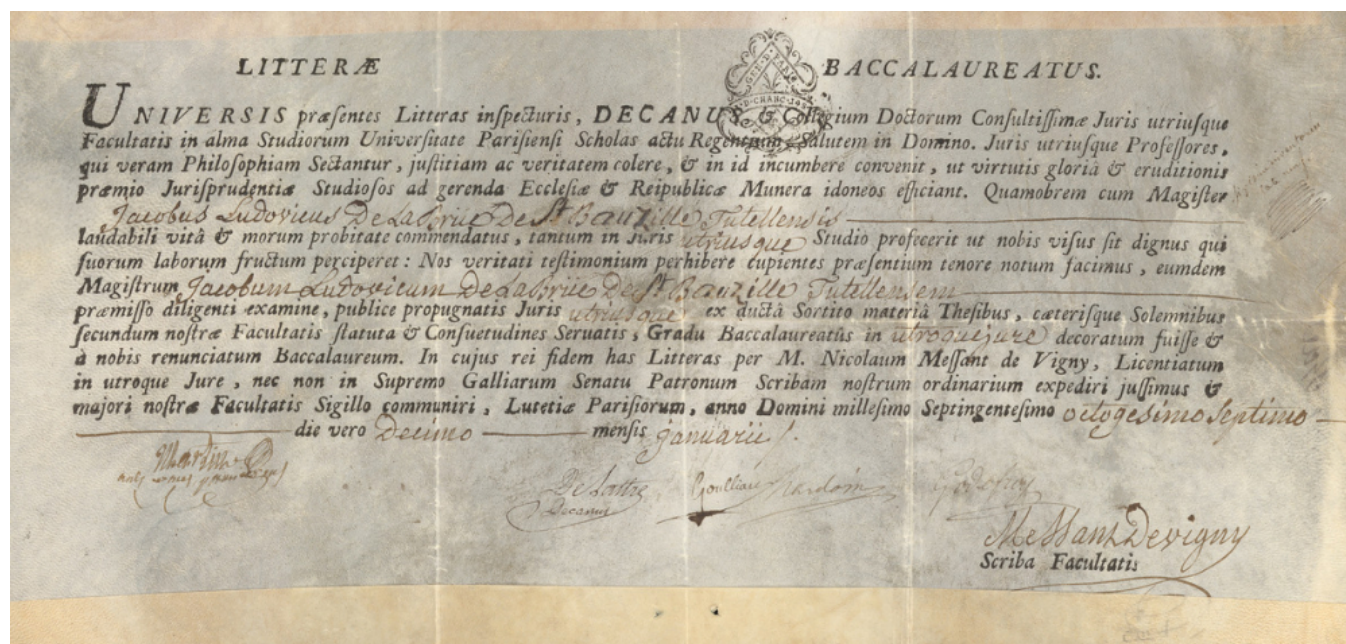 LITTERÆ BACCALAUREATUS.
GEN. D. PARIS
UNIVERSIS præsentes Litteras inſpecturis, DECANUS, & Collegium Doctorum Conſultiſſimæ Juris utriuſque
Facultatis in alma Studiorum Univerſitate Pariſienſi Scholas actu Regentium, Salutem in Domino. Juris utriuſque Profeſſores,
qui veram Philoſophiam Sectantur, juſtitiam ac veritatem colere, & in id incumbere convenit, ut virtutis gloriâ & eruditionis
præmio Juriſprudentiæ Studioſos ad gerenda Eccleſiæ & Reipublicæ Munera idoneos efficiant. Quamobrem cum Magiſter
Jacobus Ludovicus De La Brüe De St Bauzille Tutellensis
laudabili vitâ & morum probitate commendatus, tantum in Juris utriusque Studio profecerit ut nobis viſus ſit dignus qui
ſuorum laborum fructum perciperet: Nos veritati teſtimonium perhibere cupientes præſentium tenore notum facimus, eumdem
Magiſtrum Jacobum Ludovicum De La Brüe De St Bauzille Tutellensem
præmiſſo diligenti examine, publice propugnatis Juris utriusque ex ductâ Sortito materiâ Theſibus, cæteriſque Solemnibus
ſecundum noſtræ Facultatis ſtatuta & Conſuetudines Seruatis, Gradu Baccalaureatûs in utroque jure decoratum fuiſſe &
à nobis renunciatum Baccalaureum. In cujus rei fidem has Litteras per M. Nicolaum Meſſant de Vigny, Licentiatum
in utroque Jure, nec non in Supremo Galliarum Senatu Patronum Scribam noſtrum ordinarium expediri juſſimus &
majori noſtræ Facultatis Sigillo communiri, Lutetiæ Pariſiorum, anno Domini milleſimo Septingenteſimo octogesimo Septimo
die vero Decimo menſis januarii.
Martin
De Lattre Goulliart Hardoin Godefroy
Decanus
Messant Devigny
Scriba Facultatis